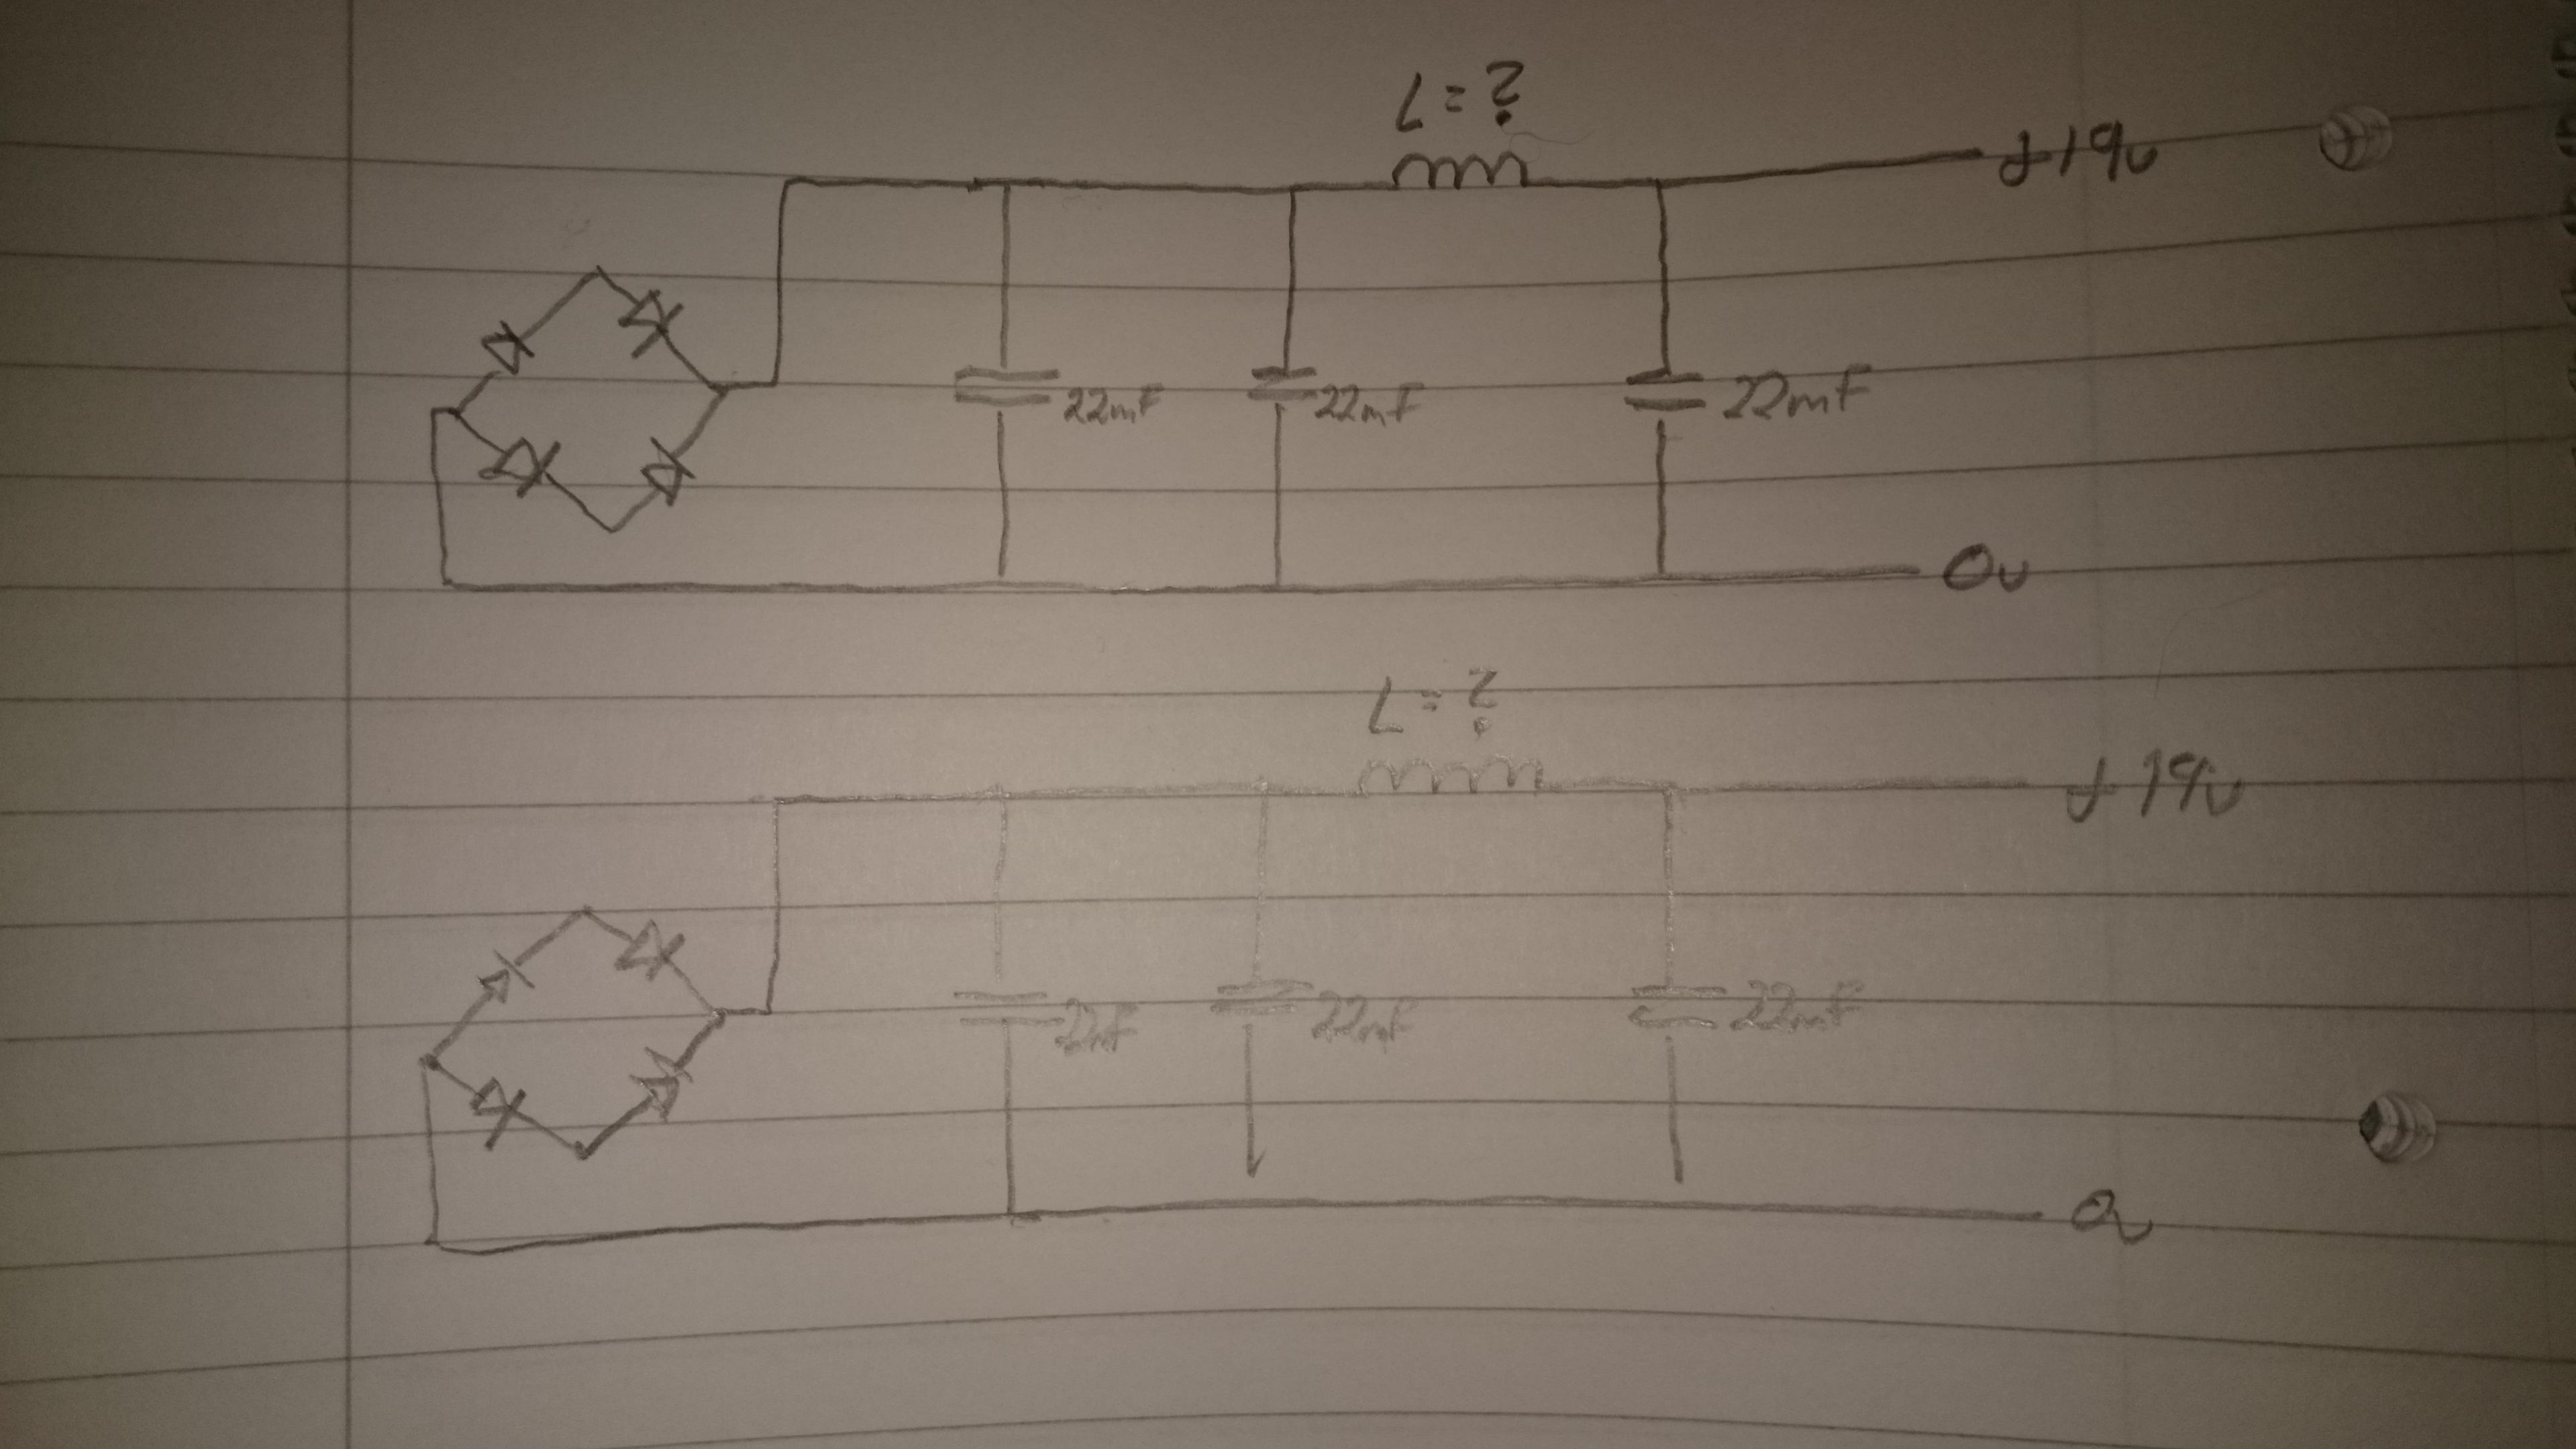 L = ?
+19v
22mF 22mF 22mF
0v
L = ?
+19v
22mF 22mF 22mF
0v